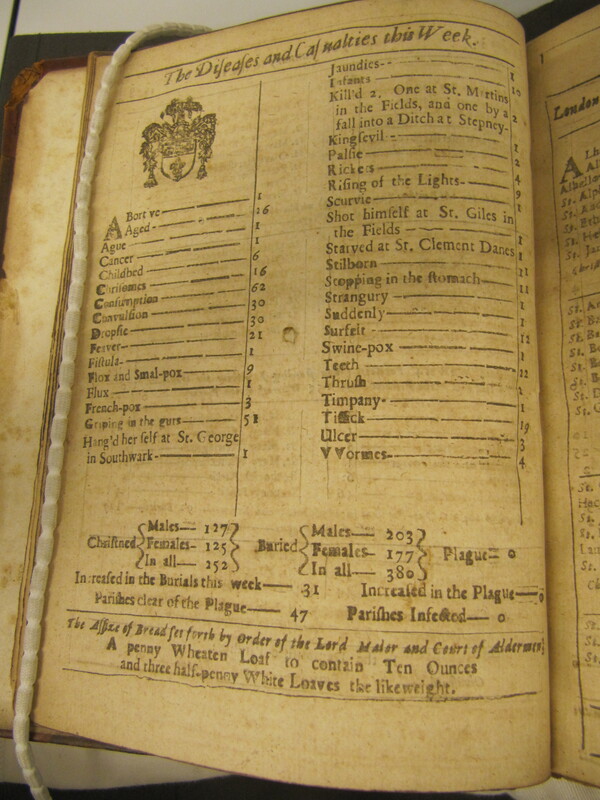 The Diseases and Casualties this Week.
Abort ve — 1
Aged — 26
Ague — 1
Cancer — 1
Childbed — 6
Chrisomes — 16
Consumption — 62
Convulsion — 30
Dropsie — 30
Feaver — 21
Fistula — 1
Flox and Smal-pox — 9
Flux — 1
French-pox — 3
Griping in the guts — 51
Hang'd her self at St. George
in Southwark - 1
Jaundies - - 1
Infants —
Kill'd 2. One at St. Martins
in the Fields, and one by a
fall into a Ditch at Stepney- 2
Kingsevil — 1
Palsie — 2
Rickets — 4
Rising of the Lights- 9
Scurvie — 1
Shot himself at St. Giles in
the Fields — 1
Starved at St. Clement Danes 1
Stilborn — 11
Stopping in the stomach — 11
Strangury — 1
Suddenly — 1
Surfeit — 12
Swine-pox — 1
Teeth — 22
Thrush —
Timpany- 1
Tissick — 19
Ulcer — 3
VVormes — 4
Christned { Males — 127 Females- 125 In all — 252 } Buried { Males — 203 Females- 177 In all — 380 } Plague— 0
Increased in the Burials this week — 31 Increased in the Plague — 0
Parishes clear of the Plague — 47 Parishes Infected — 0
The Assize of Bread set forth by Order of the Lord Maior and Court of Aldermen,
A penny Wheaten Loaf to contain Ten Ounces
and three half-penny White Loaves the like weight.
London